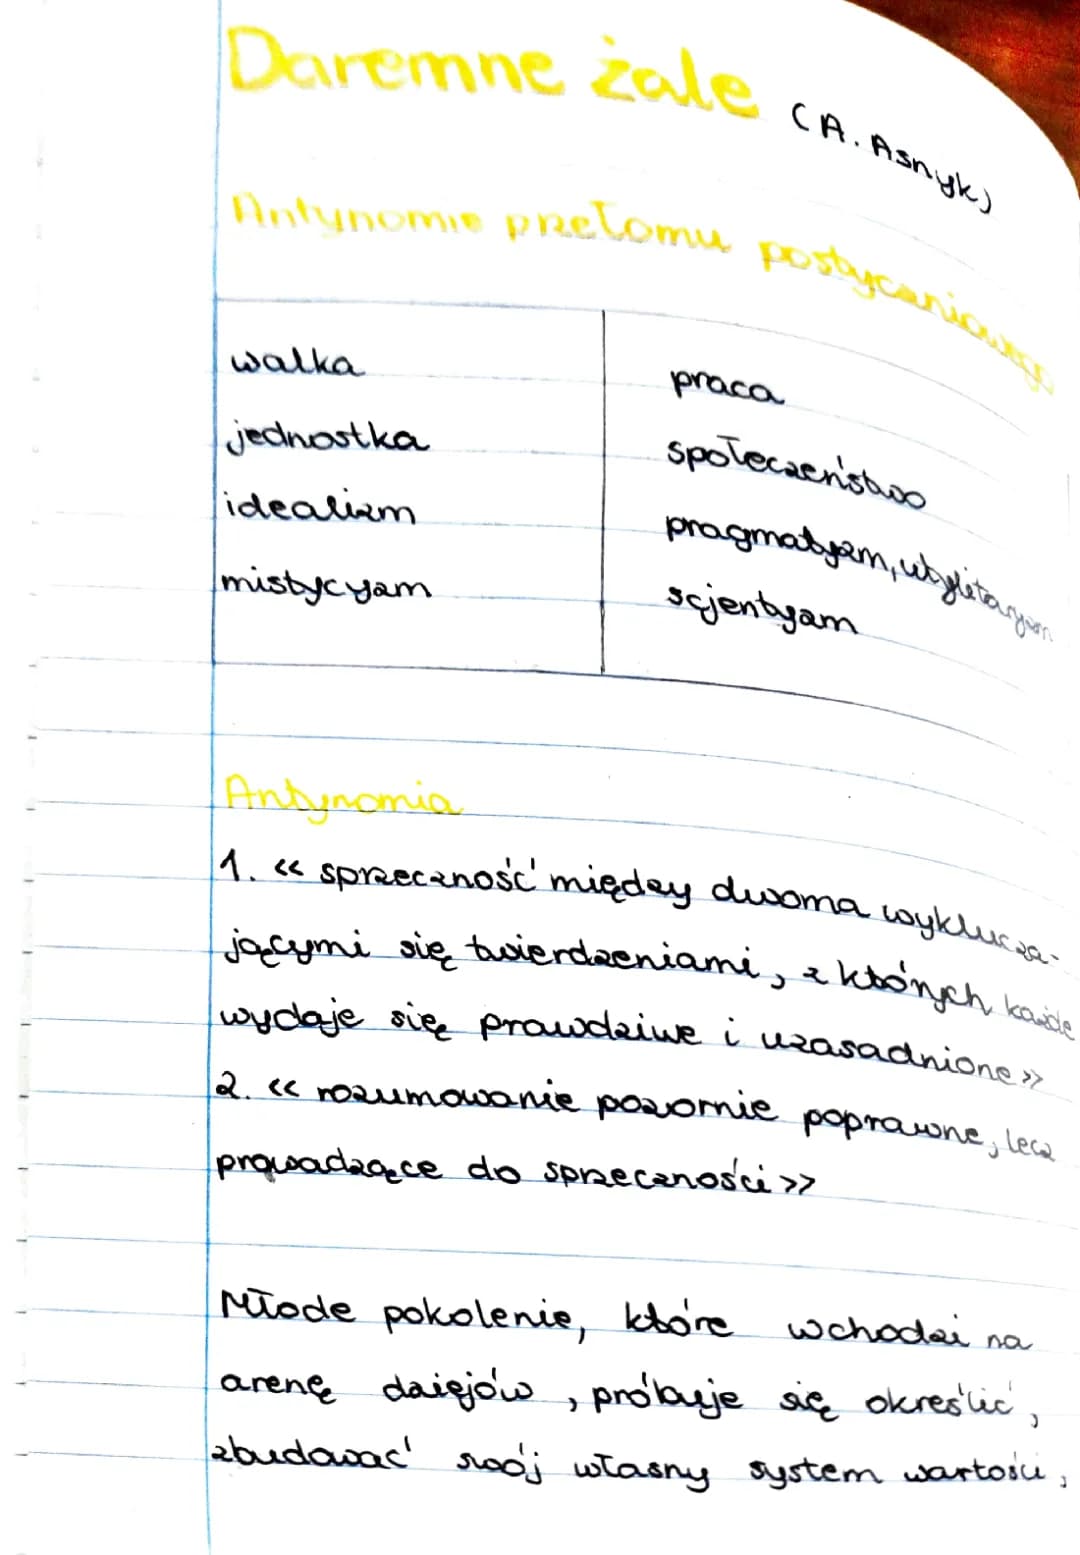 Daremne żale (A. Asnyk)
Antynomie przełomu postyczniowego
walka praca
jednostka społeczeństwo
idealizm pragmatyzm, utylitaryzm
mistycyzm scjentyzm
Antynomia
1. << sprzeczność między dwoma wyklucza-
jącymi się twierdzeniami, z których każde
wydaje się prawdziwe i uzasadnione >>
2. << rozumowanie pozornie poprawne, lecz
prowadzące do sprzeczności >>
Młode pokolenie, które wchodzi na
arenę dziejów, próbuje się określić,
zbudować swój własny system wartości,